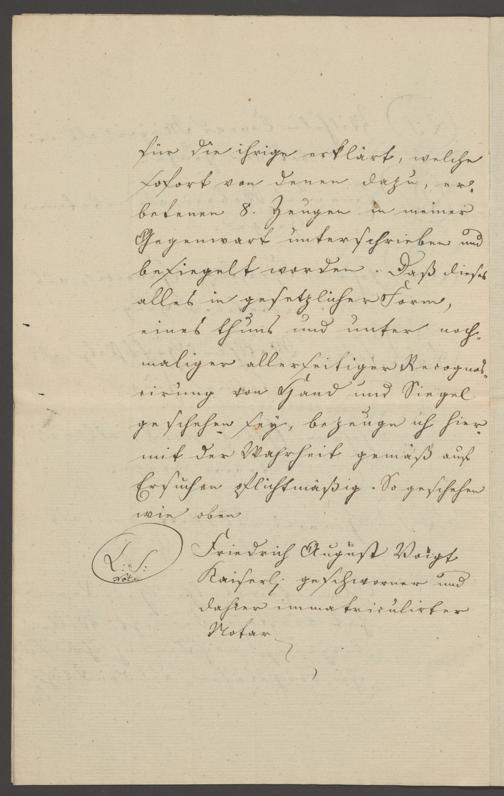 für die ihrige erklärt, welche
sofort von denen dazu, er-
betenen 8. Zeugen in meiner
Gegenwart unterschrieben und
besiegelt worden. Daß dieses
alles in gesetzlicher Form,
eines thuns und unter noch-
maliger allerseitiger Recognos-
cirung von Hand und Siegel
geschehen sey, bezeuge ich hier-
mit der Wahrheit gemäß auf
Ersuchen pflichtmäßig. So geschehen
wie oben
L. S.
Friedrich August Voigt
Kaiserl. geschworner und
dahier immatriculirter
Notar